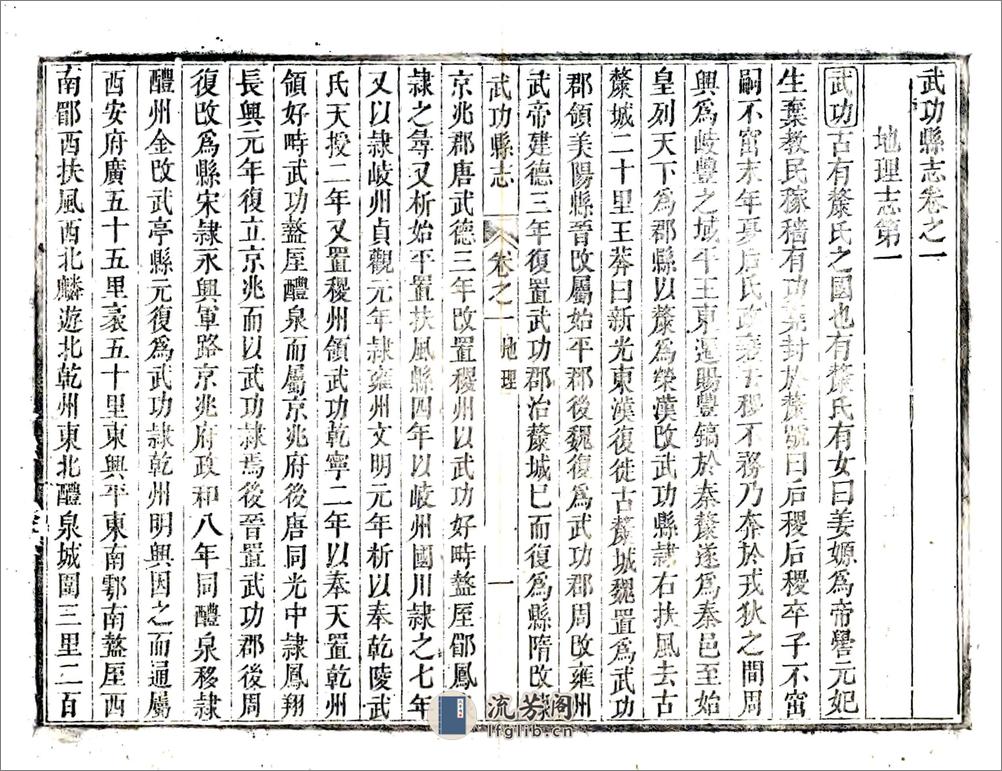 武功縣志卷之一
地理志第一
武功古有斄氏之國也有斄氏有女曰姜嫄爲帝嚳元妃
生棄教民稼穡有功堯封於斄號曰后稷后稷卒子不窋
嗣不窋末年夏后氏政衰去稷不務乃奔於戎狄之間周
興爲岐豐之域平王東遷賜豐鎬於秦斄遂爲秦邑至始
皇列天下爲郡縣以斄爲榮漢改武功縣隷右扶風去古
斄城二十里王莽曰新光東漢復徙古斄城魏置爲武功
郡領美陽縣晉改屬始平郡後魏復爲武功郡周改雍州
武帝建德三年復置武功郡治斄城已而復爲縣隋改隷
武功縣志 卷之一 地理 一
京兆郡唐武德三年改置稷州以武功好畤盩厔郿鳳
隷之尋又析始平置扶風縣四年以岐州國川隷之七年
又以隷岐州貞觀元年隷雍州文明元年析以奉乾陵武
氏天授二年又置稷州領武功乾寧二年以奉天置乾州
領好畤武功盩厔醴泉而屬京兆府後唐同光中隷鳳翔
長興元年復立京兆而以武功隷焉後晉置武功郡後周
復改爲縣宋隷永興軍路京兆府政和八年同醴泉移隷
醴州金改武亭縣元復爲武功隷乾州明興因之而通屬
西安府廣五十五里袤五十里東興平東南鄠南盩厔西
南郿西扶風西北麟遊北乾州東北醴泉城圍三里二百
流芳阁
lfglib.cn